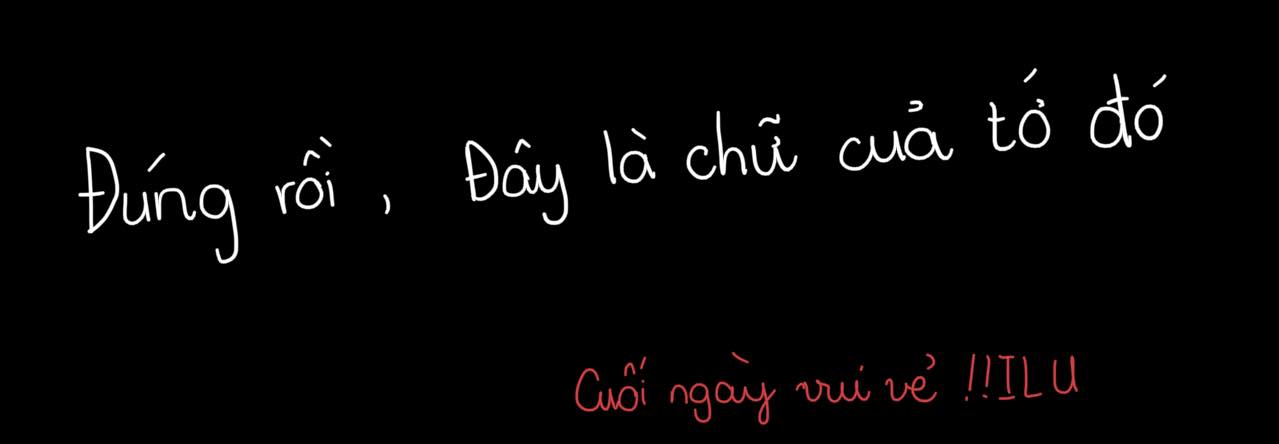 Đúng rồi, Đây là chữ của tớ đó
Cuối ngày vui vẻ !!ILU